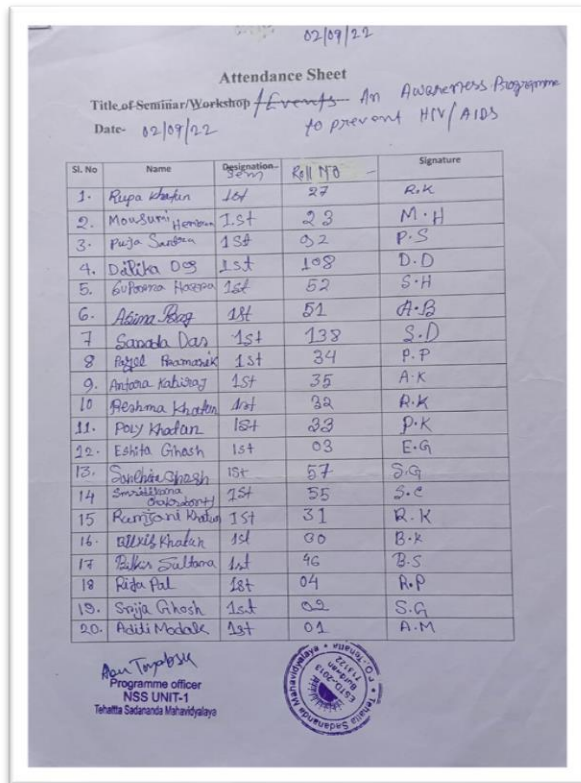 02/09/22
Attendance Sheet
Title of Seminar/Workshop /Events- An Awareness Programme
to prevent HIV/AIDS
Date- 02/09/22
Sl. No Name Designation Sem Roll No Signature
1. Rupa Khatun 1st 27 R.K
2. Mousumi 1st 23 M.H
3. Puja 1st 92 P.S
4. Dalika Das 1st 108 D.D
5. Hazra 1st 52 S.H
6. Asima Bag 1st 51 A.B
7 Das 1st 138 S.D
8 Payel Pramanik 1st 34 P.P
9. Antara Kabiraj 1st 35 A.K
10 Reshma Khatun 1st 32 R.K
11. Poly Khatun 1st 33 P.K
12. Eshita Ghosh 1st 03 E.G
13. Ghosh 1st 57 S.G
14 1st 55 S.C
15 Ramjani Khatun 1st 31 R.K
16. Khatun 1st 30 B.K
17 Bilkis Sultana 1st 46 B.S
18 Rida Pal 1st 04 R.P
19. Srija Ghosh 1st 02 S.G
20. Aditi Modak 1st 01 A.M
Programme officer
NSS UNIT-1
Tehatta Sadananda Mahavidyalaya
Tehatta Sadananda Mahavidyalaya
ESTD-2013